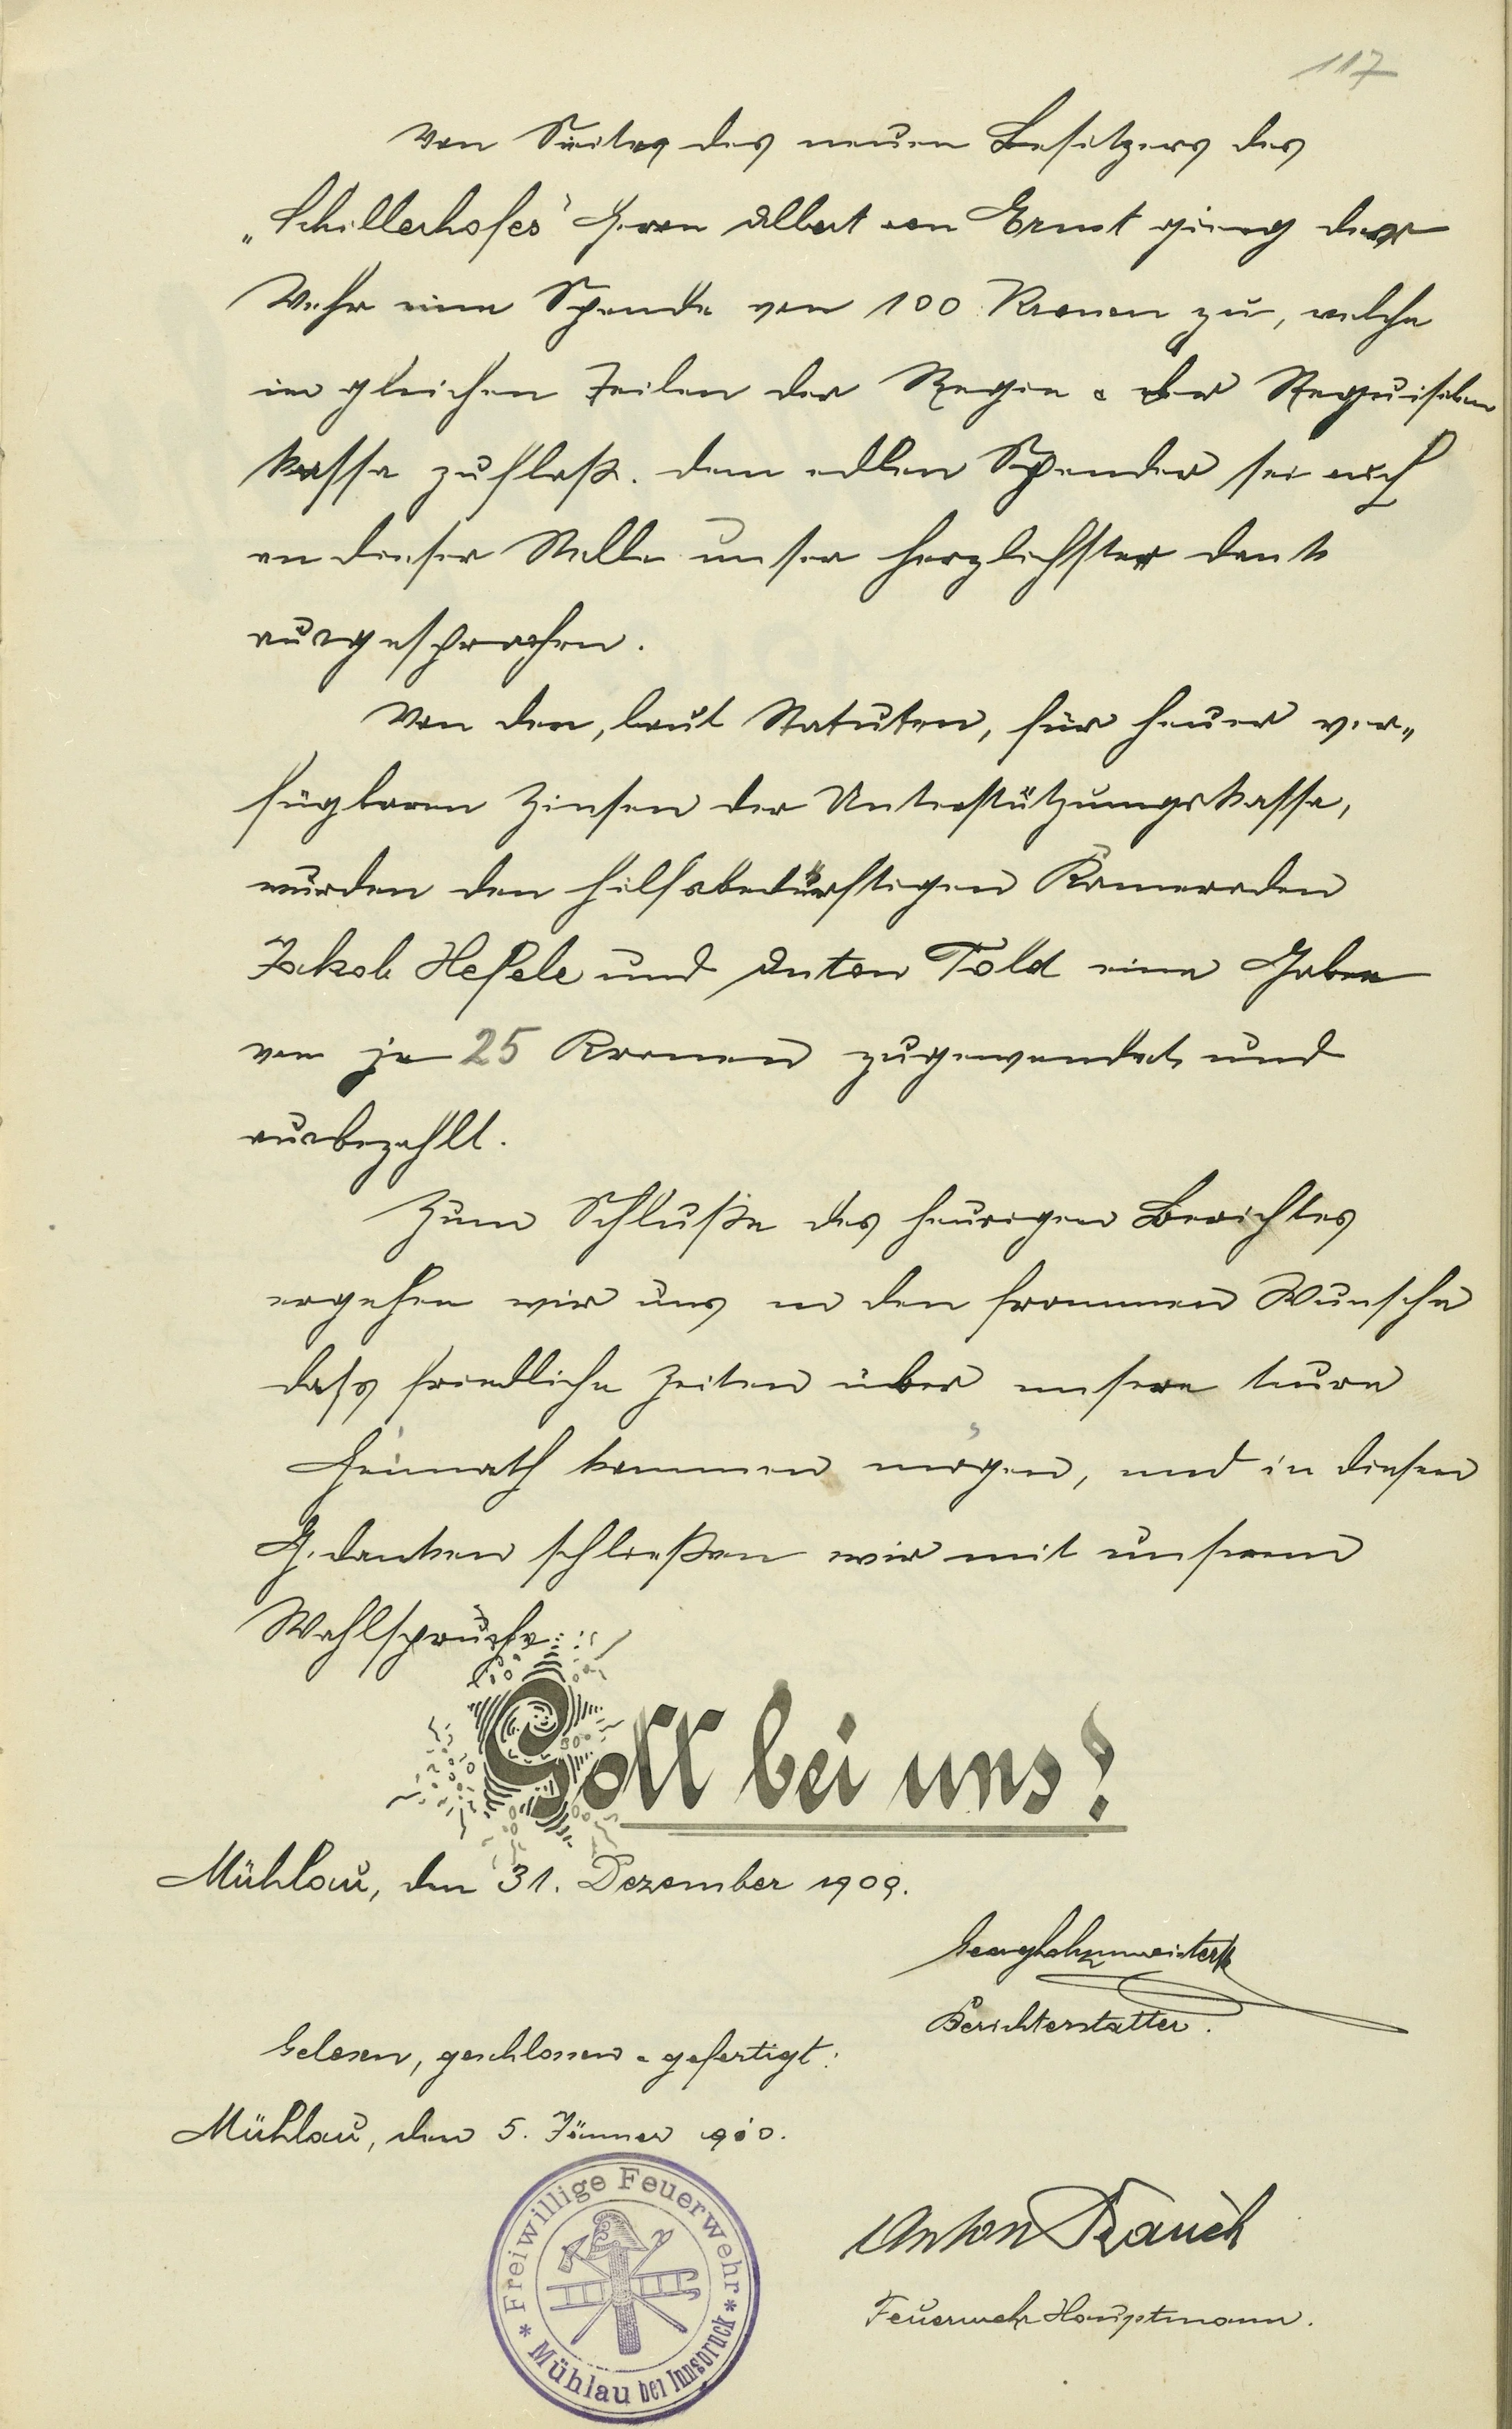 117
Von Seiten des neuen Besitzers des
„Schillerhofes" Herrn Albert von Ernst gieng der
Wehr eine Spende von 100 Kronen zu, welche
in gleichen Teilen der Regie & der Requisiten
kassa zufloß. Dem edlen Spender sei auch
an dieser Stelle unser herzlichster Dank
ausgesprochen.
Von den, laut Statuten, für heuer ver„
fügbaren Zinsen der Unterstützungskassa,
wurden den hilfsbedürftigen Kameraden
Jakob Hefele und Anton Told eine Gabe
von je 25 Kronen zugewendet und
ausbezahlt.
Zum Schluße des heurigen Berichtes
ergehen wir uns in den frommen Wunsche
dass friedliche Zeiten über unsere teure
Heimath kommen mögen, und in diesem
Gedanken schließen wir mit unserem
Wahlspruche:
Gott bei uns!
Mühlau, den 31. Dezember 1909.
Berichterstatter.
Gelesen, geschlossen & gefertigt:
Mühlau, den 5. Jänner 1910.
Anton Rauch
Feuerwehr Hauptmann.
* Freiwillige Feuerwehr *
Mühlau bei Innsbruck